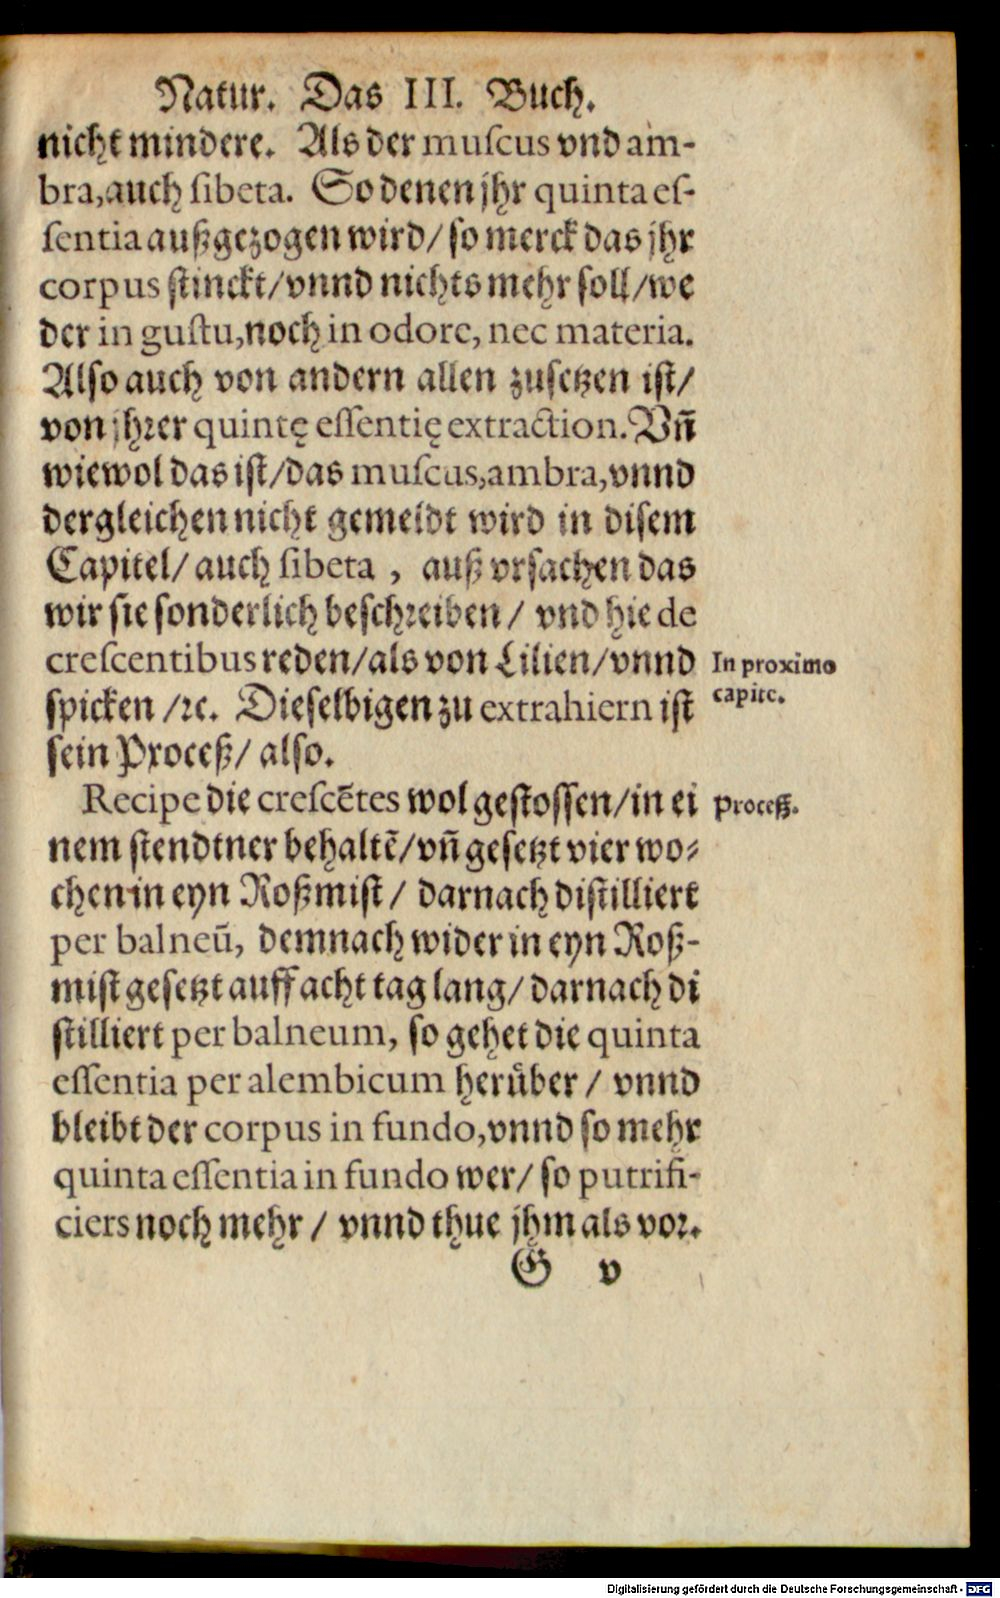 Natur. Das III. Buch.
nicht mindere. Als der muſcus vnd am-
bra, auch ſibeta. So denen jhr quinta eſ-
ſentia außgezogen wird/ ſo merck das jhr
corpus ſtinckt/ vnnd nichts mehr ſoll/ we
der in guſtu, noch in odore, nec materia.
Alſo auch von andern allen zuſetzen iſt/
von jhrer quintę eſſentię extraction. Vñ
wiewol das iſt/ das muſcus, ambra, vnnd
dergleichen nicht gemeldt wird in diſem
Capitel/ auch ſibeta , auß vrſachen das
wir ſie ſonderlich beſchreiben/ vnd hie de
creſcentibus reden/ als von Lilien/ vnnd
In proximo
capite.
ſpicken /ꝛc. Dieſelbigen zu extrahiern iſt
ſein Proceß/ alſo.
Recipe die creſcētes wol geſtoſſen/ in ei
Proceß.
nem ſtendtner behaltē/ vñ geſetzt vier wo⸗
chen in eyn Roßmiſt/ darnach diſtilliert
per balneū, demnach wider in eyn Roß-
miſt geſetzt auff acht tag lang/ darnach di
ſtilliert per balneum, ſo gehet die quinta
eſſentia per alembicum herüber/ vnnd
bleibt der corpus in fundo, vnnd ſo mehr
quinta eſſentia in fundo wer/ ſo putrifi-
ciers noch mehr/ vnnd thue jhm als vor.
G v
Digitalisierung gefördert durch die Deutsche Forschungsgemeinschaft - DFG